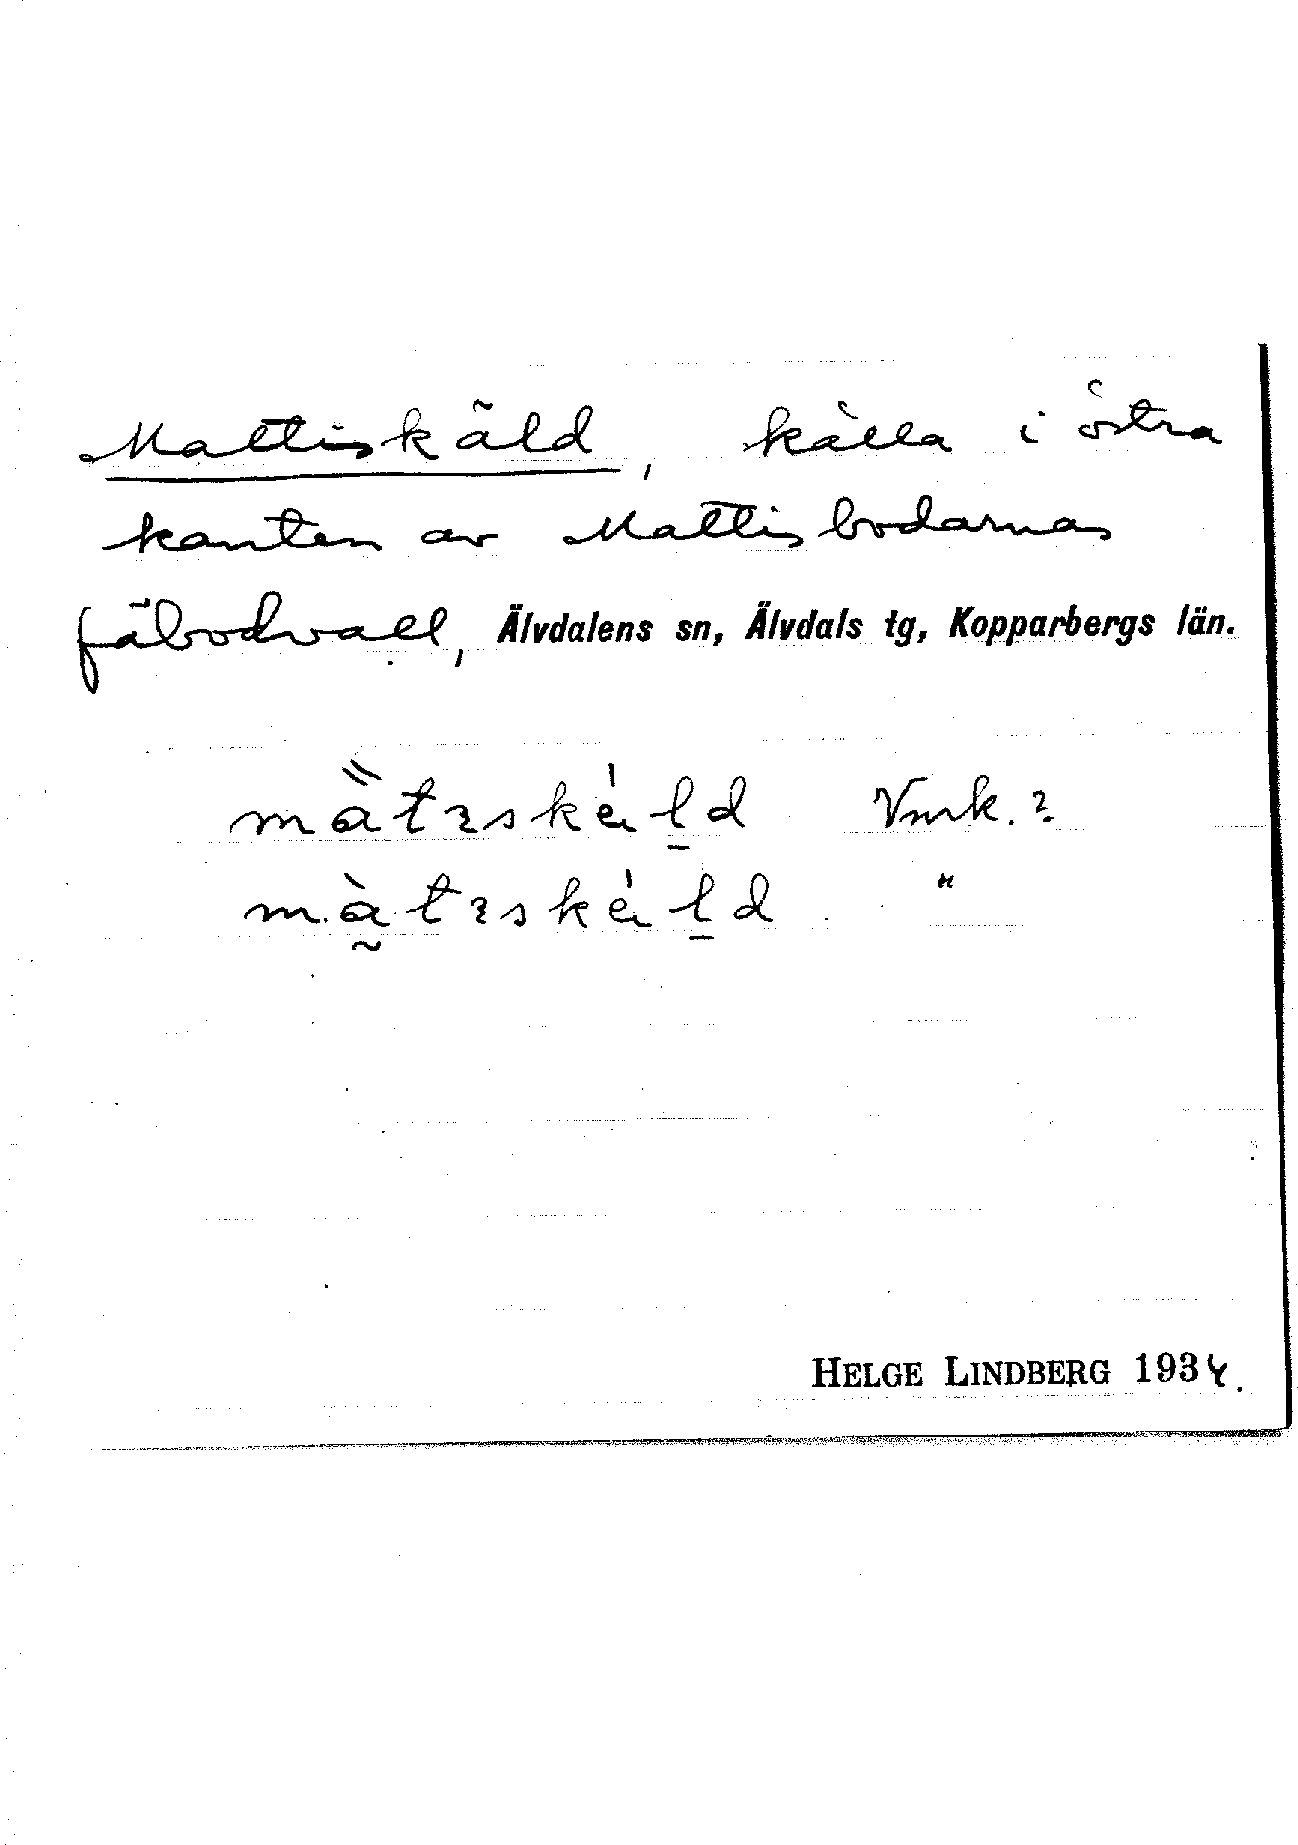 Mattiskäld, källa i östra
kanten av Mattisbodarnas
fäbodvall, Älvdalens sn, Älvdals tg, Kopparbergs län.
Vmk. ?
"
HELGE LINDBERG 1934.